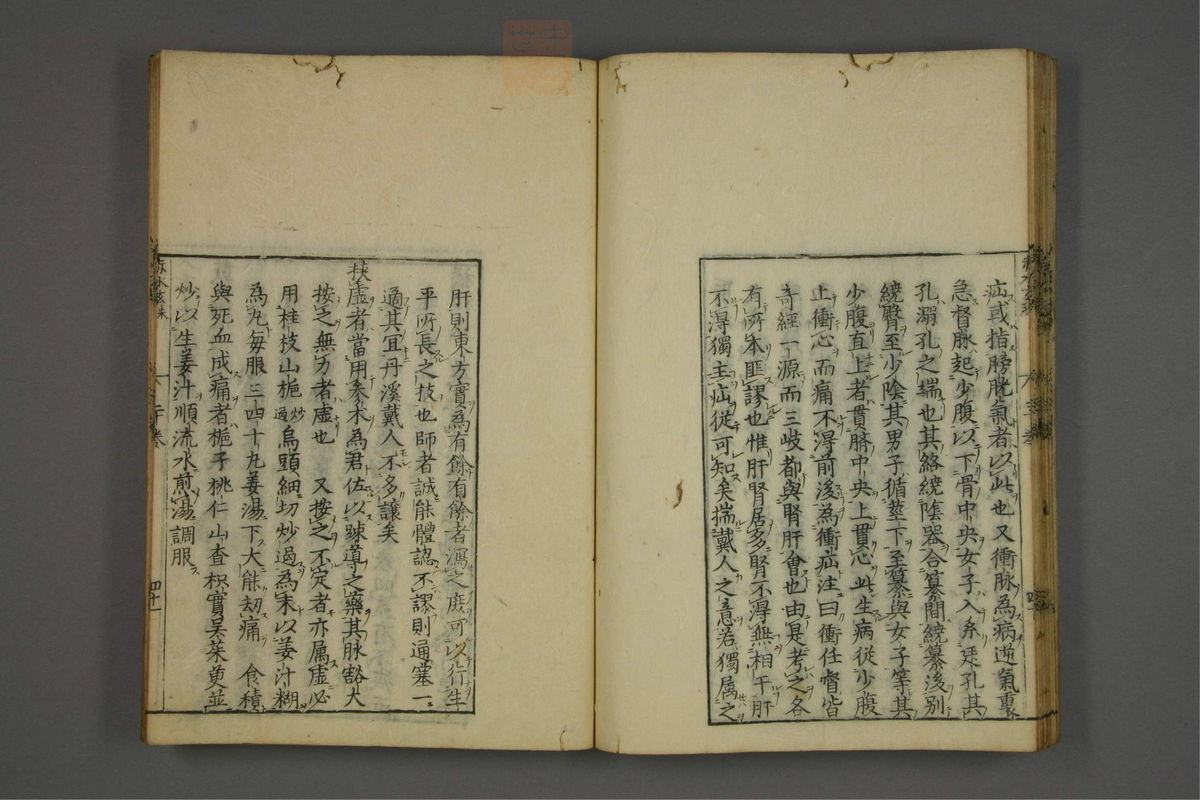 疝或指膀胱氣者以此也又衝脉為病逆氣裏
急督脉起少腹以下骨中央女子入系廷孔其
孔溺孔之端也其絡繞陰器合篡間繞篡後別
繞臀至少陰其男子循莖下至篡與女子等其
少腹直上者貫臍中央上貫心此生病從少腹
上衝心而痛不得前後為衝疝注曰衝任督皆
奇經一源而三岐都與腎肝會也由是考之各
有所本匪謬也惟肝腎居多腎不得無相干肝
不得獨主疝從可知矣揣戴人之意若獨属之
肝則東方實為有餘有餘者瀉之庶可以行生
平所長之技也師者誠能體認不謬則通塞一二
適其宜丹溪戴人不多讓矣
扶虛者當用參朮為君佐以踈導之藥其脉豁大
按之無力者虛也 又按之不定者亦属虛必
用桂枝山梔炒過烏頭細切炒過為末以姜汁糊
為丸每服三四十九姜湯下大能刼痛 食積
與死血成痛者梔子桃仁山查枳實吳茱萸並
炒以生姜汁順流水煎湯調服
赤水玄珠
二十卷
四十一